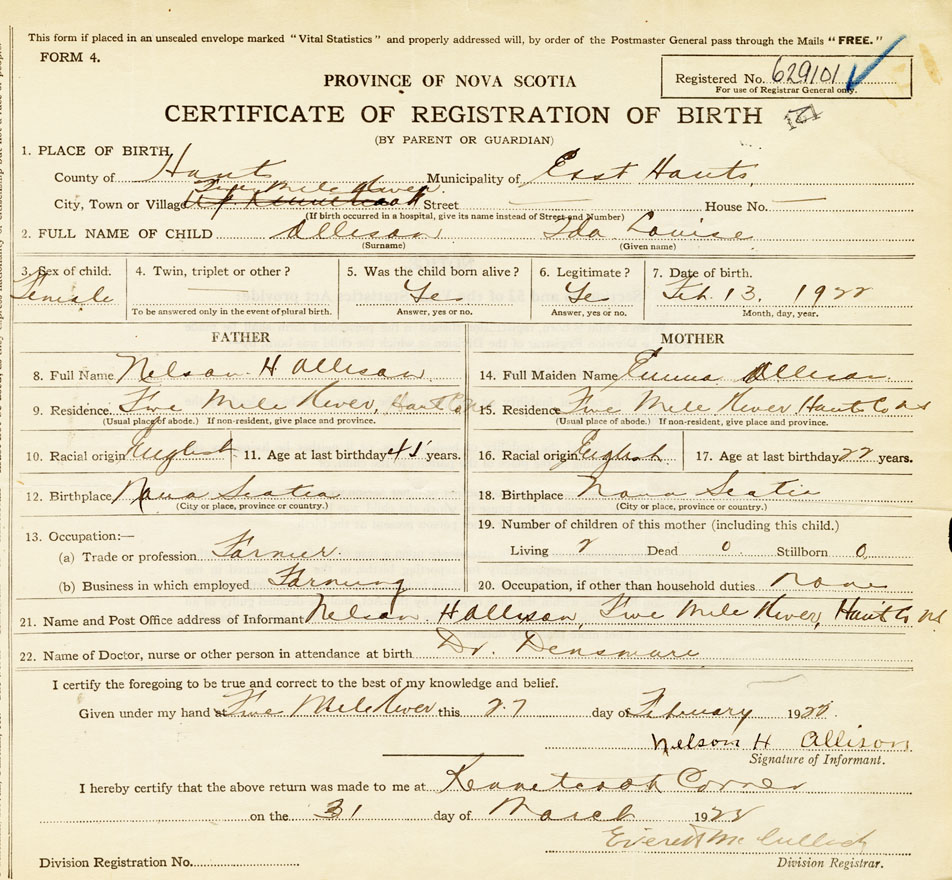 This form if placed in an unsealed envelope marked "Vital Statistics" and properly addressed will, by order of the Postmaster General pass through the Mails "FREE."
FORM 4.
Registered No. 629101
For use of Registrar General only.
PROVINCE OF NOVA SCOTIA
CERTIFICATE OF REGISTRATION OF BIRTH
(BY PARENT OR GUARDIAN)
1. PLACE OF BIRTH
County of Hants Municipality of East Hants,
City, Town or Village Five Mile River Street — House No. —
(If birth occurred in a hospital, give its name instead of Street and Number)
2. FULL NAME OF CHILD Allison Ida Louise
(Surname) (Given name)
3. Sex of child. 4. Twin, triplet or other? 5. Was the child born alive? 6. Legitimate? 7. Date of birth.
Female — Yes Yes Feb. 13. 1922
To be answered only in the event of plural birth. Answer, yes or no. Answer, yes or no. Month, day, year.
FATHER MOTHER
8. Full Name Nelson H Allison 14. Full Maiden Name Emma Allison
9. Residence. Five Mile River, Hant Co 15. Residence Five Mile River, Hant Co NS
(Usual place of abode.) If non-resident, give place and province. (Usual place of abode.) If non-resident, give place and province.
10. Racial origin English 11. Age at last birthday years. 16. Racial origin English 17. Age at last birthday 22 years.
12. Birthplace Nova Scotia 18. Birthplace Nova Scotia
(City or place, province or country.) (City or place, province or country.)
13. Occupation:— 19. Number of children of this mother (including this child.)
(a) Trade or profession Farmer. Living 2 Dead 0 Stillborn 0
(b) Business in which employed Farming 20. Occupation, if other than household duties none
21. Name and Post Office address of Informant Nelson H Allison, Five Mile River, Hant Co NS
22. Name of Doctor, nurse or other person in attendance at birth Dr. Densmore
I certify the foregoing to be true and correct to the best of my knowledge and belief.
Given under my hand at Five Mile River this 27 day of February 1922.
Nelson H Allison
Signature of Informant.
I hereby certify that the above return was made to me at Kennetcook Corner
on the 31 day of March 1922
Everett McCulloch
Division Registration No. Division Registrar.